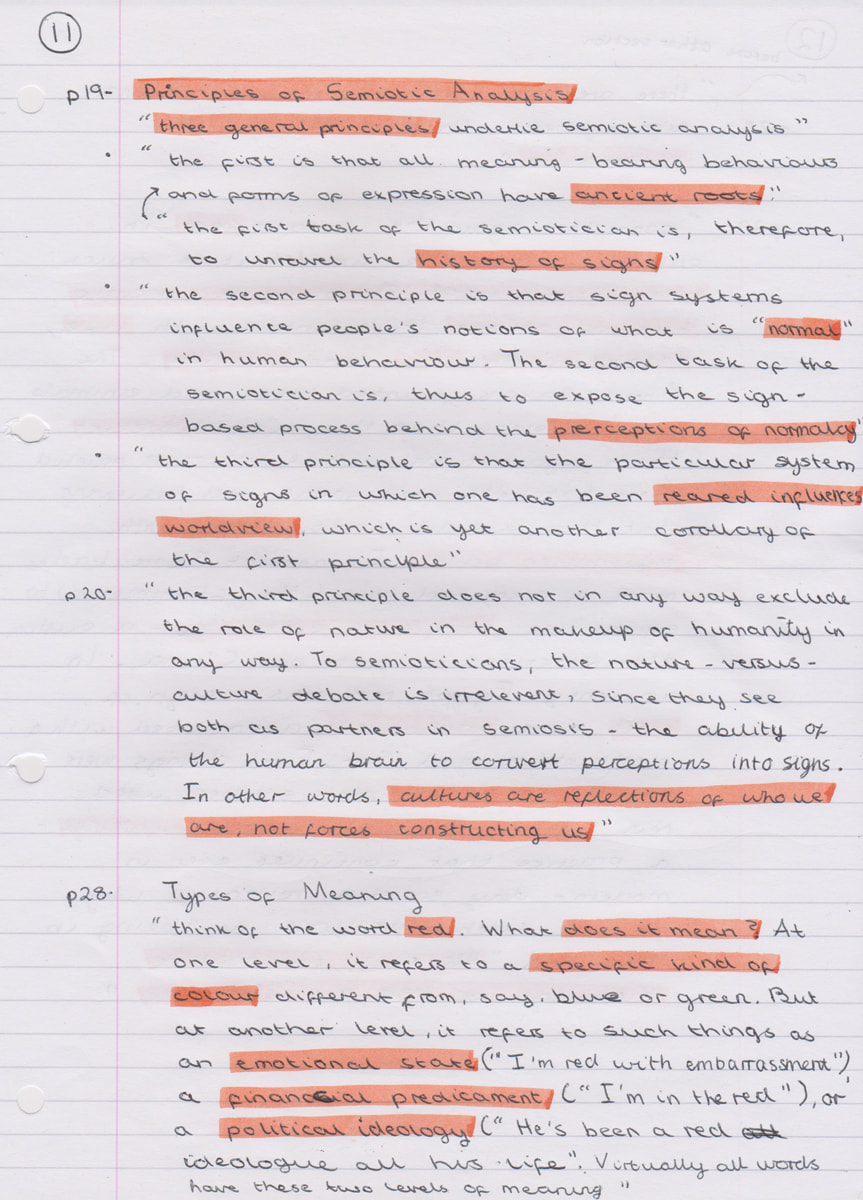 11
p19- Principles of Semiotic Analysis
"three general principles underlie semiotic analysis"
• "the first is that all meaning - bearing behaviours
and forms of expression have ancient roots."
"the first task of the semiotician is, therefore,
to unravel the history of signs"
• "the second principle is that sign systems
influence people's notions of what is "normal"
in human behaviour. The second task of the
semiotician is, thus to expose the sign-
based process behind the prerceptions of normalcy"
• "the third principle is that the particular system
of signs in which one has been reared influences
worldview, which is yet another corollary of
the first principle"
p20- "the third principle does not in any way exclude
the role of nature in the makeup of humanity in
any way. To semioticians, the nature - versus -
culture debate is irrelevent, since they see
both as partners in semiosis - the ability of
the human brain to convert perceptions into signs.
In other words, cultures are reflections of who we
are, not forces constructing us"
p28- Types of Meaning
"think of the word red. What does it mean? At
one level, it refers to a specific kind of
colour different from, say, blue or green. But
at another level, it refers to such things as
an emotional state ("I'm red with embarrassment")
a financial predicament ("I'm in the red"), or
a political ideology ("He's been a red
ideologue all his life". Virtually all words
have these two levels of meaning"